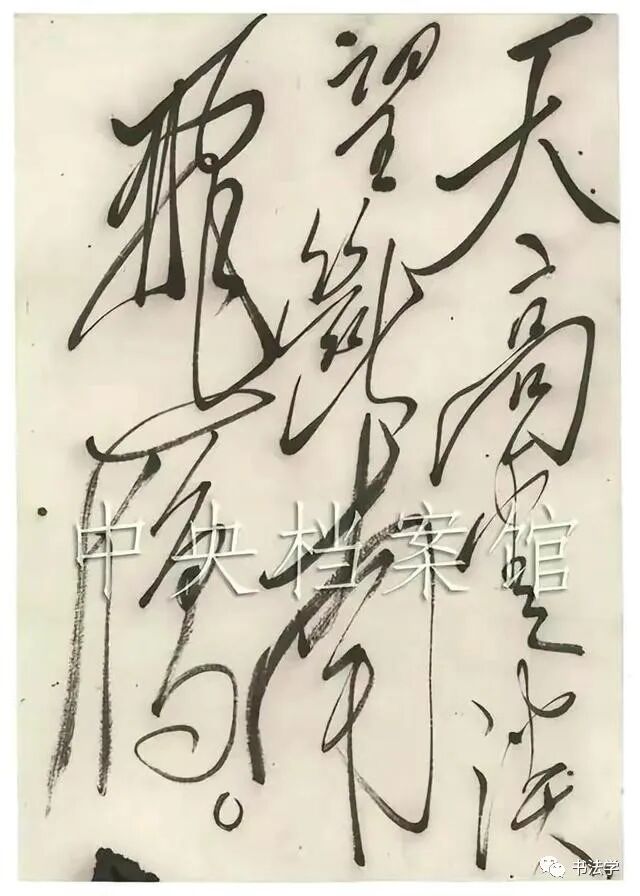 天高雲淡
望斷南
飛雁。
中央档案馆
书法学